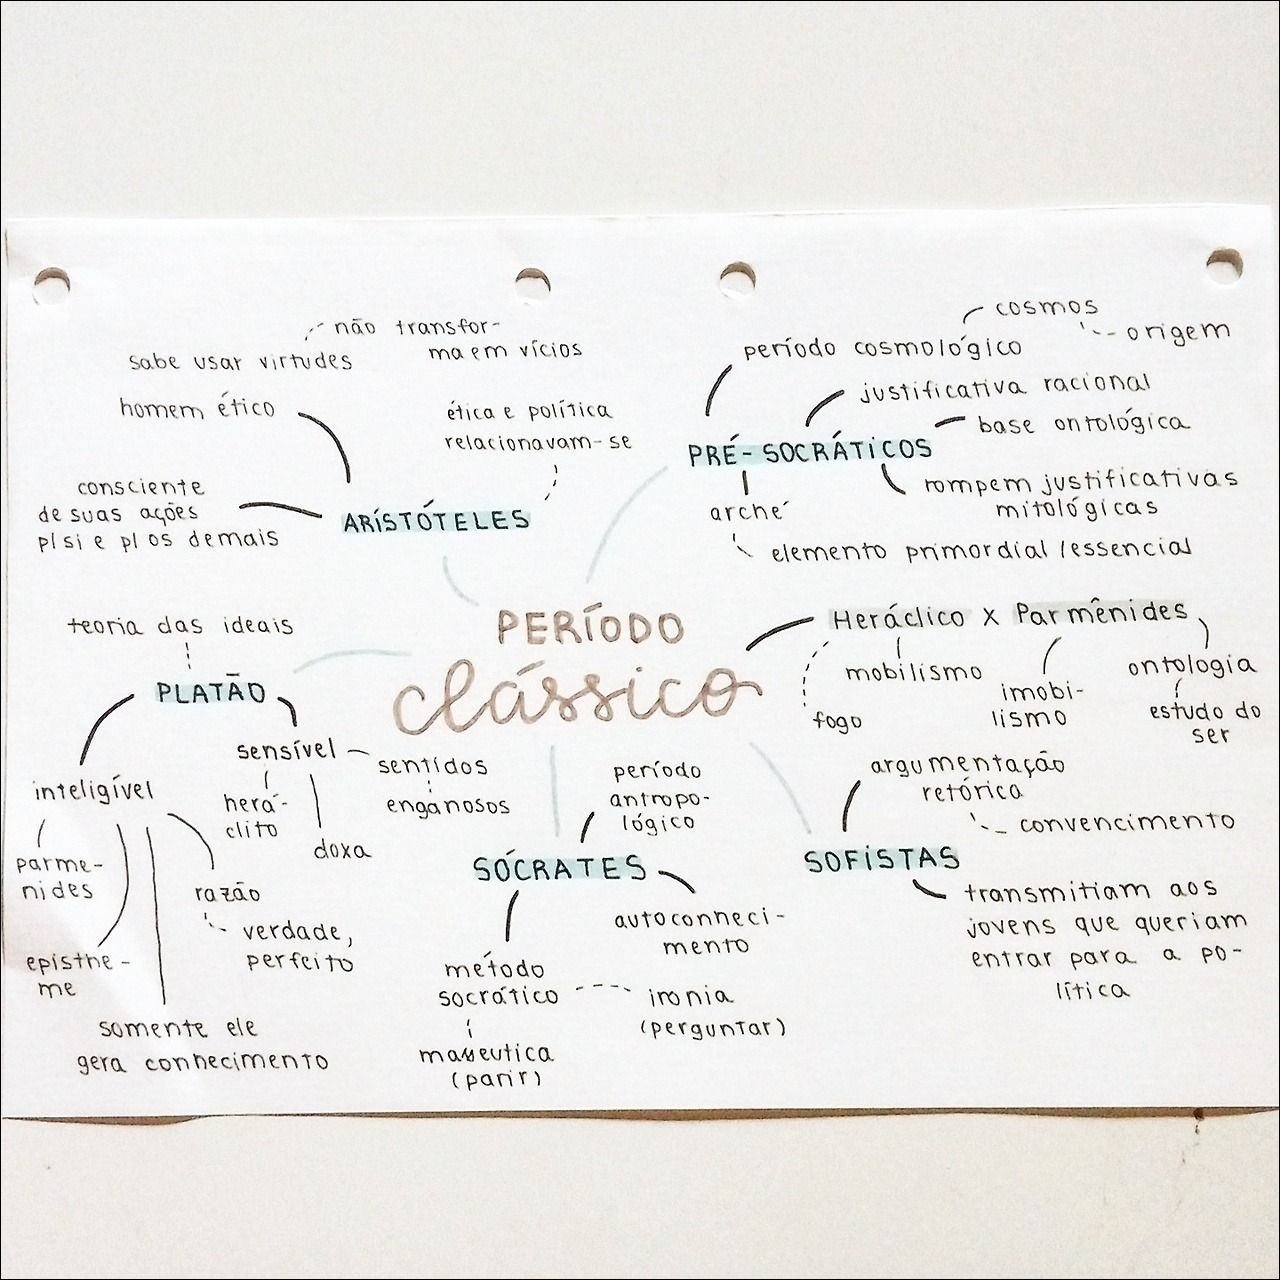 PERÍODO
clássico
ARISTÓTELES
homem ético
sabe usar virtudes
não transfor-
ma em vícios
ética e política
relacionavam-se
consciente
de suas ações
p/ si e p/ os demais
PRÉ-SOCRÁTICOS
período cosmológico
cosmos
origem
justificativa racional
base ontológica
rompem justificativas
mitológicas
arché
elemento primordial/essencial
Heráclico X Parmênides
mobilismo
fogo
imobi-
lismo
ontologia
estudo do
ser
PLATÃO
teoria das ideais
sensível
sentidos
enganosos
herá-
clito
doxa
inteligível
parme-
nides
episthe-
me
razão
verdade,
perfeito
somente ele
gera conhecimento
SÓCRATES
período
antropo-
lógico
autoconheci-
mento
método
socrático
ironia
(perguntar)
(parir)
SOFISTAS
argumentação
retórica
convencimento
transmitiam aos
jovens que queriam
entrar para a po-
lítica